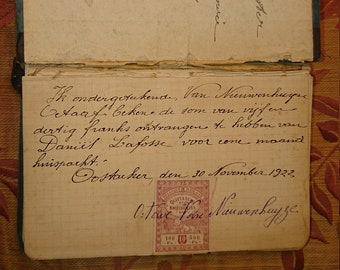 Ik ondergetekende, Van Nieuwenhuyse
Octaaf beken de som van vijf en
dertig franks ontvangen te hebben van
Daniël Lafosse voor eene maand
huispacht.
Oostakker, den 30 November 1922
Octave Van Nieuwenhuyze
10